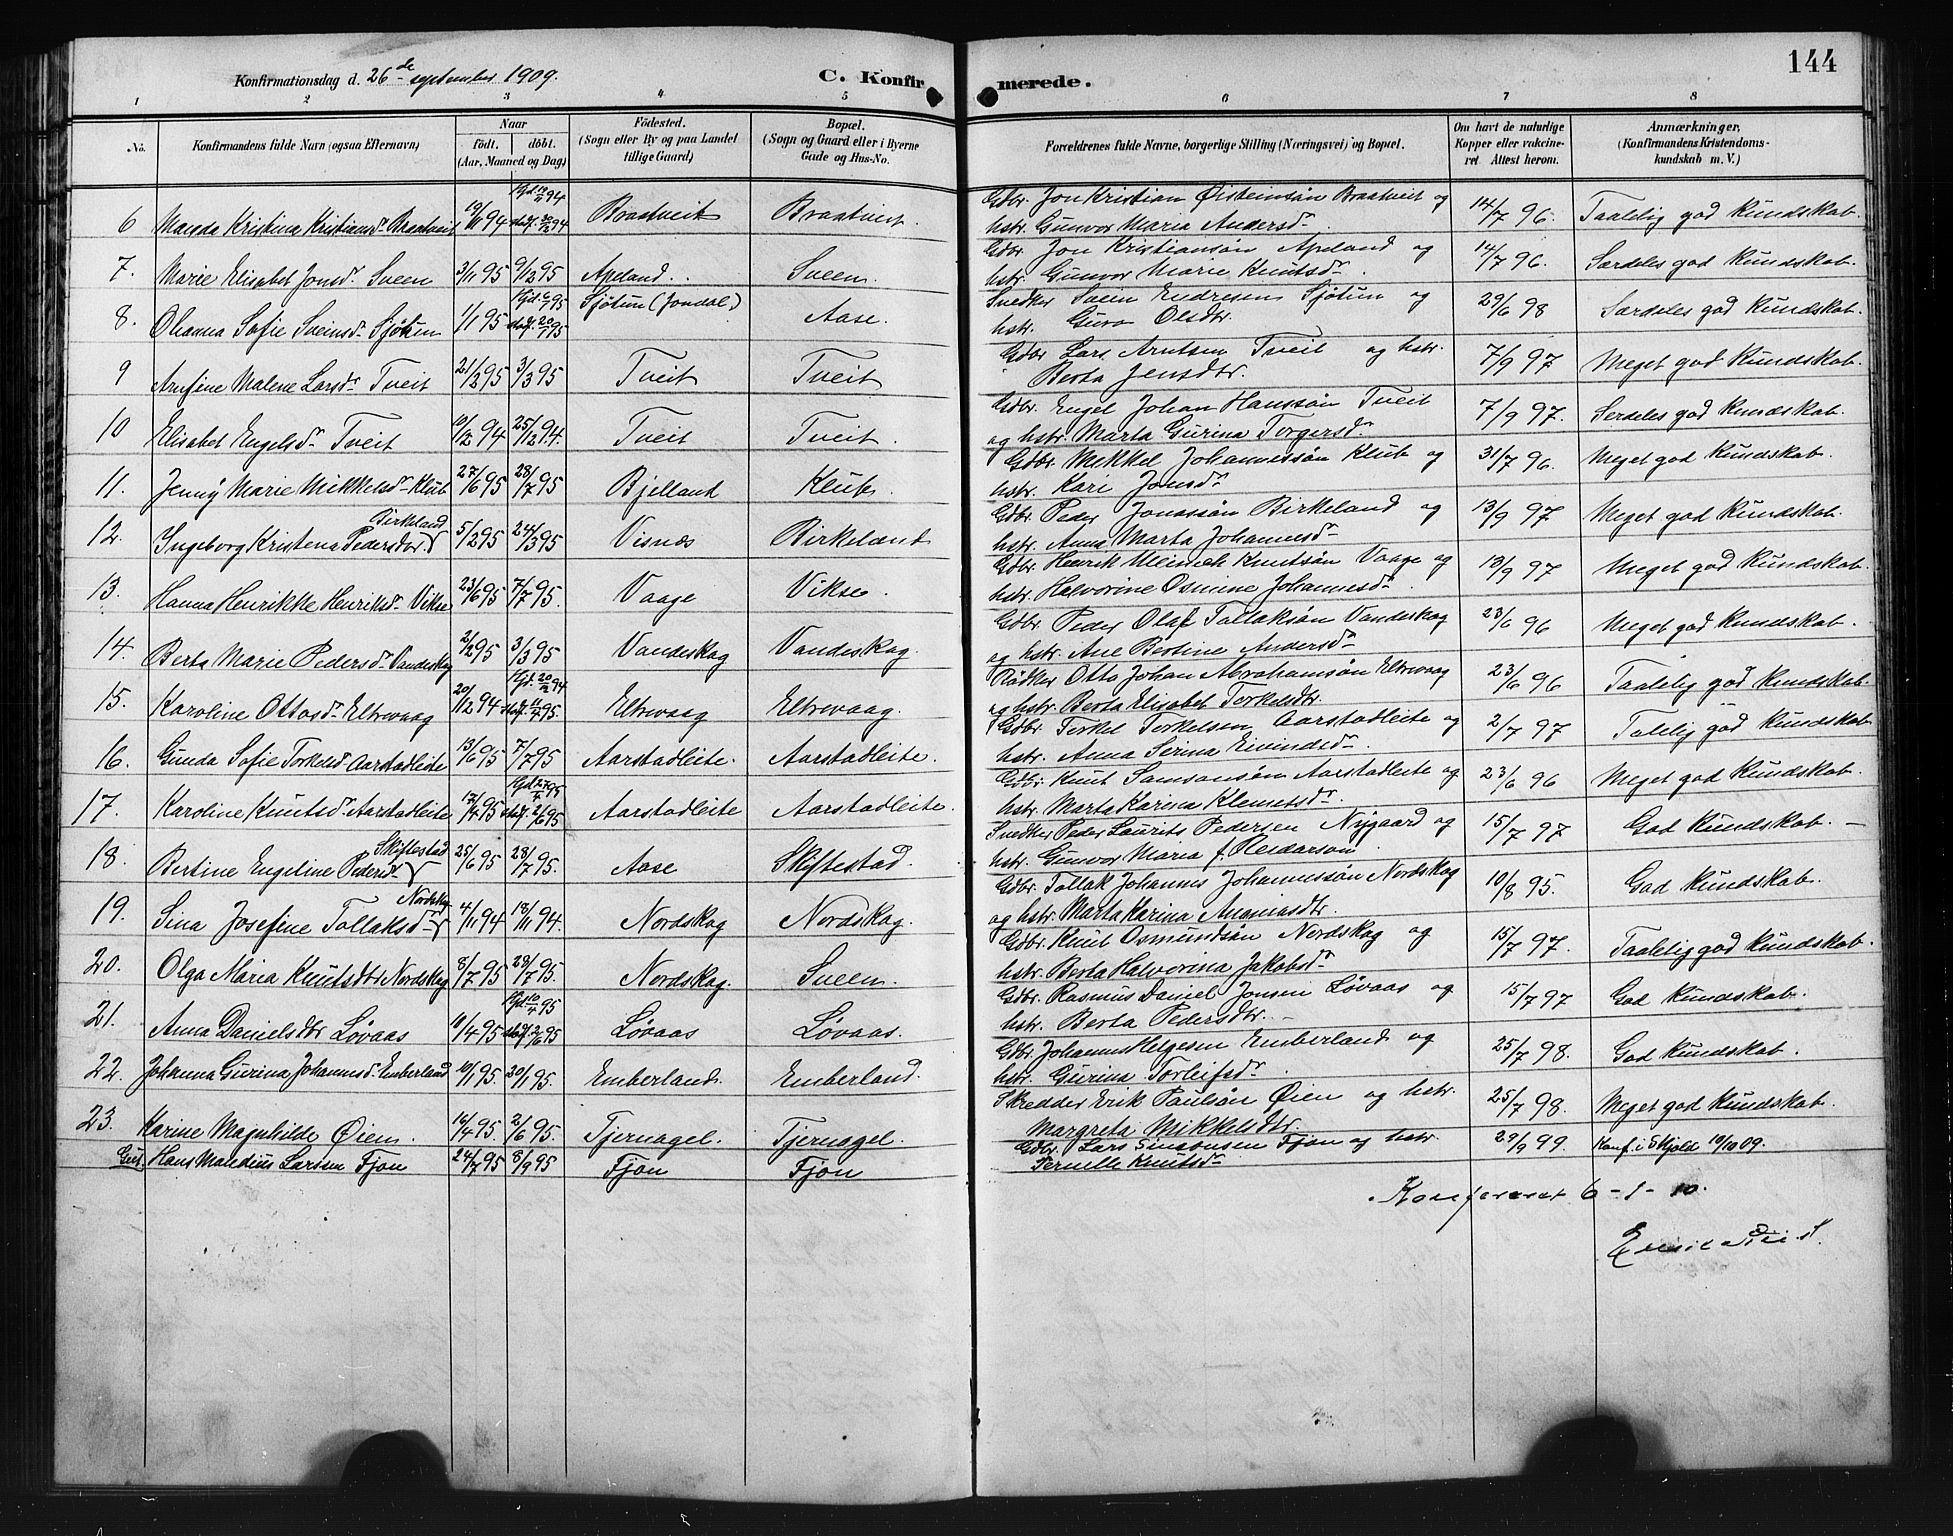 144
Konfirmationsdag d. 26de september 1909. C. Konfirmerede.
1 2 3 4 5 6 7 8
No. Konfirmandens fulde Navn (ogsaa Efternavn) Naar födt. döbt. (Aar, Maaned og Dag) Födested. (Sogn eller By og paa Landet tillige Gaard) Bopæl. (Sogn og Gaard eller i Byerne Gade og Hus-No. Forældrenes fulde Navne, borgerlige Stilling (Næringsvei) og Bopæl. Om havt de naturlige Kopper eller vakcineret. Attest herom. Anmærkninger, (Konfirmandens Kristendomskundskab m. V.)
6 Magda Kristina Kristiansdr Braatveit 19/11 94 Braatveit Braatveit. Gdbr. Jon Kristian Øisteinsøn Braatveit og hstr. Gunvor Maria Andersdr. 14/7 96. Taalelig god kundskab.
7. Marie Elisabet Jonsdr Sveen 3/11 95 9/12 95 Apeland. Sveen. Gdbr. Jon Kristiansøn Apeland og hstr. Gunvor Marie Knutsdr. 14/7 96. Særdeles god kundskab.
8. Olianna Sofie Sveinsdr Sjøtun 1/1 95 Hjd. 6/1 95 stadf. 20/1 95 Sjøtun (Jondal) Aase. Snedker Svein Endresen Sjøtun og hstr. Guro Olsdtr. 29/6 98 Særdeles god kundskab.
9 Arnfine Malene Larsdr Tveit 21/2 95 3/3 95 Tveit Tveit Gdbr Lars Arntsen Tveit og hstr. Berta Jensdtr. 7/9 97 Meget god kundskab.
10 Elisabet Engelsdr Tveit 10/12 94 25/12 94. Tveit Tveit. Gdbr. Engel Johan Hanssøn Tveit og hstr. Marta Gurina Torgersdr 7/9 97. Serdeles god kundskab.
11. Jenny Marie Mikkelsdr Klub 27/6 95 28/7 95 Bjelland Klub. Gdbr. Mikkel Johannessøn Klub og hstr. Kari Jonsdr 31/7 96. Meget god kundskab.
12. Ingeborg Kristena Pedersdtr Birkeland 5/2 95 24/3 95 Visnes Birkeland Gdbr. Peder Jonassøn Birkeland og hstr. Anna Marta Johannesdr 13/9 97 Meget god kundskab.
13. Hanna Henrikke Henriksdr Vikse 23/6 95 7/7 95. Vaage Vikse. Gdbr. Henrik Knutsøn Vaage og hstr. Halvorine Osmine Johannesdr. 13/9 97 Meget god kundskab.
14. Berta Marie Pedersdr Vandeskog 2/2 95 3/3 95 Vandeskog Vandeskog. Gdbr. Peder Olaf Tollaksøn Vandeskog og hstr. Ane Bertine Andersdr 23/6 96 Meget god kundskab.
15. Karoline Ottosdr Eltrevaag 20/12 94 Hjd. 20/12 94 Eltrevaag Eltrevaag. Bødker Otto Johan Abrahamsøn Eltrevaag og hstr. Berta Elisabet Terkelsdtr. 23/6 96 Taalelig god kundskab.
16. Gunda Sofie Torkelsdr Aarstadleite 13/6 95 7/7 95 Aarstadleite. Aarstadleite. Gdbr. Terkel Terkelsen Aarstadleite og hstr. Anna Serina Eivindsdr. 2/7 97 Talelig god kundskab
17. Karoline Knutsdr Aarstadleite 17/4 95 Aarstadleite Aarstadleite. Gdbr. Knut Samsonsøn Aarstadleite og hstr. Marta Karina Klemetsdr. 23/6 96 Meget god kundskab.
18. Bertine Engeline Pedersdr Skiftestad 25/6 95 28/7 95. Aase Skiftestad. Snedker Peder Laurits Pedersen Nygaard og hstr. Gunvor Maria f. 15/7 97 God kundskab.
19. Sina Josefine Tollaksdr Nordskog 4/11 94 18/11 94. Nordskog Nordskog. Gdbr. Tollak Johannes Johannessøn Nordskog og hstr. Marta Karina 10/8 95. God kundskab.
20. Olga Maria Knutsdtr Nordskog 8/7 95 28/7 95. Nordskog. Sveen. Gdbr. Knut Osmundsøn Nordskog og hstr. Berta Halvorina Jakobsdr 15/7 97. Taalelig god kundskab.
21. Anna Danielsdtr Løvaas 10/4 95 Hjd. 10/4 95 stadf. 2/6 95 Løvaas Løvaas. Gdbr. Rasmus Daniel Jonsen Løvaas og hstr. Berta Pedersdtr. 15/7 97 God kundskab.
22. Johanna Gurina Johannesdr Emberland 10/1 95. 20/1 95. Emberland. Emberland. Gdbr. Johannes Helgesen Emberland og hstr. Gurina Torleifsdr. 25/7 98. God kundskab.
23. Karine Magnhilde Øien. 16/4 95. 2/6 95. Tjernagel. Tjernagel. Skredder Erik Paulsøn Øien og hstr. Margreta Mikkelsdtr. 25/7 98. Meget god kundskab.
Gut. Hans Maldius Larsen Fjon 24/7 95 8/9 95 Fjon Fjon Gdbr. Lars Simonsen Fjon og hstr. Pernille Knutsdr 29/9 99. Konf. i Skjold 10/10 09.
Konfereret 6-1-10.